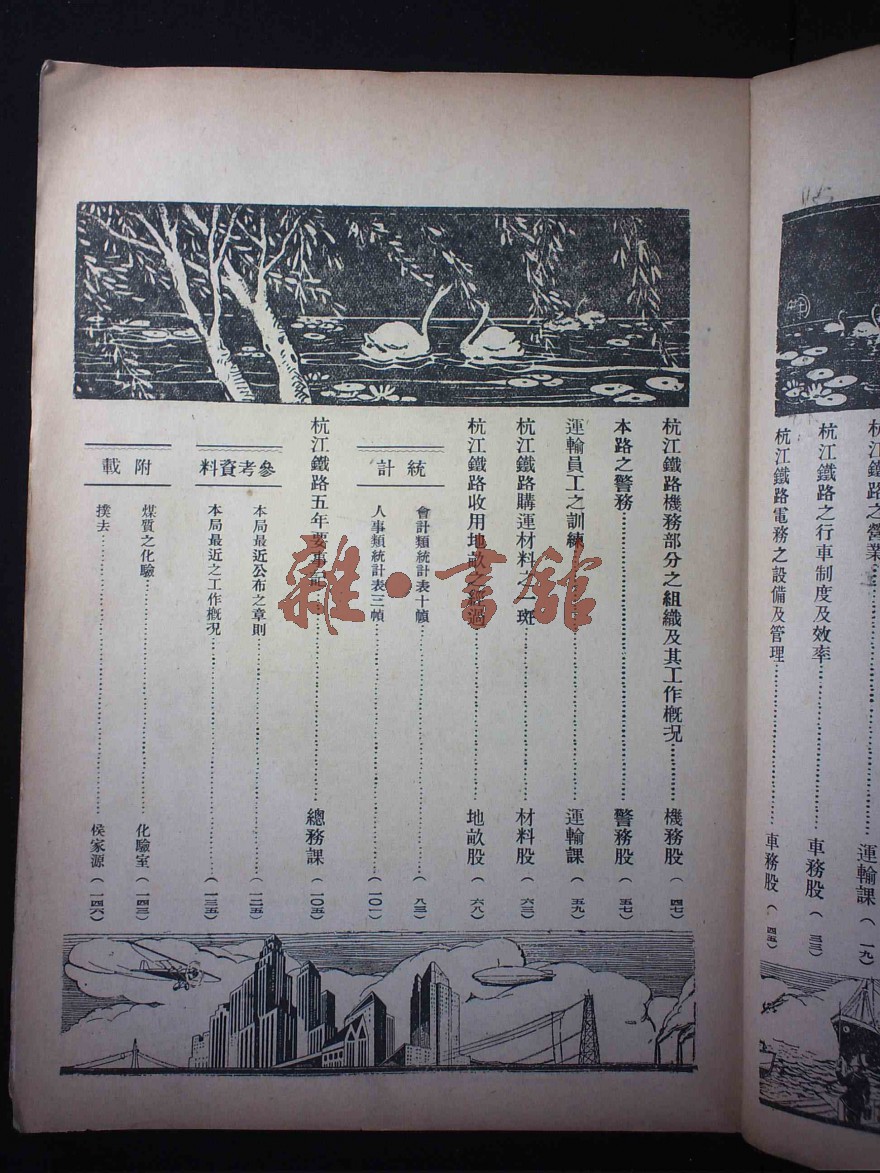 杭江鐵路之營業……運輸課（一九）
杭江鐵路之行車制度及效率……車務股（三三）
杭江鐵路電務之設備及管理……車務股（四五）
杭江鐵路機務部分之組織及其工作概況……機務股（四七）
本路之警務……警務股（五七）
運輸員工之訓練……運輸課（五九）
杭江鐵路購運材料之一斑……材料股（六三）
杭江鐵路收用地畝之經過……地畝股（六八）
統計
會計類統計表十幀……（八三）
人事類統計表二幀……（一〇一）
杭江鐵路五年要事記……總務課（一〇五）
參考資料
本局最近公布之章則……（一二五）
本局最近之工作概況……（一三五）
附載
煤質之化驗……化驗室（一四三）
撲去……侯家源（一四六）
雜·書館